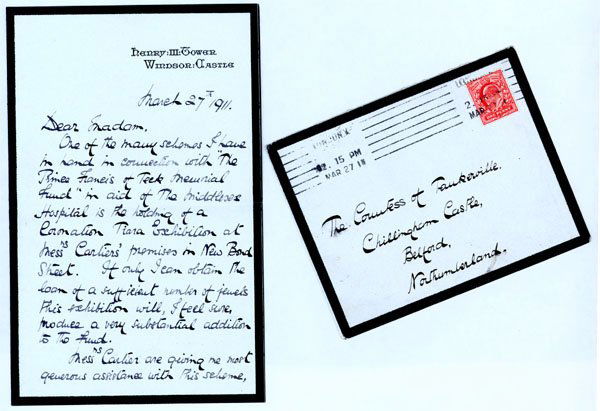 Henry:III:Tower
Windsor:Castle
March 27th 1911.
Dear Madam,
One of the many schemes I have
in hand in connection with "The
Prince Francis of Teck Memorial
Fund" in aid of The Middlesex
Hospital is the holding of a
Coronation Tiara Exhibition at
Messrs Cartier's premises in New Bond
Street. If only I can obtain the
loan of a sufficient number of jewels
this exhibition will, I feel sure,
produce a very substantial addition
to the Fund.
Messrs Cartier are giving me most
generous assistance with this scheme,
12.15 PM
MAR 27 11
The Countess of Tankerville,
Chillingham Castle,
Belford,
Northumberland.